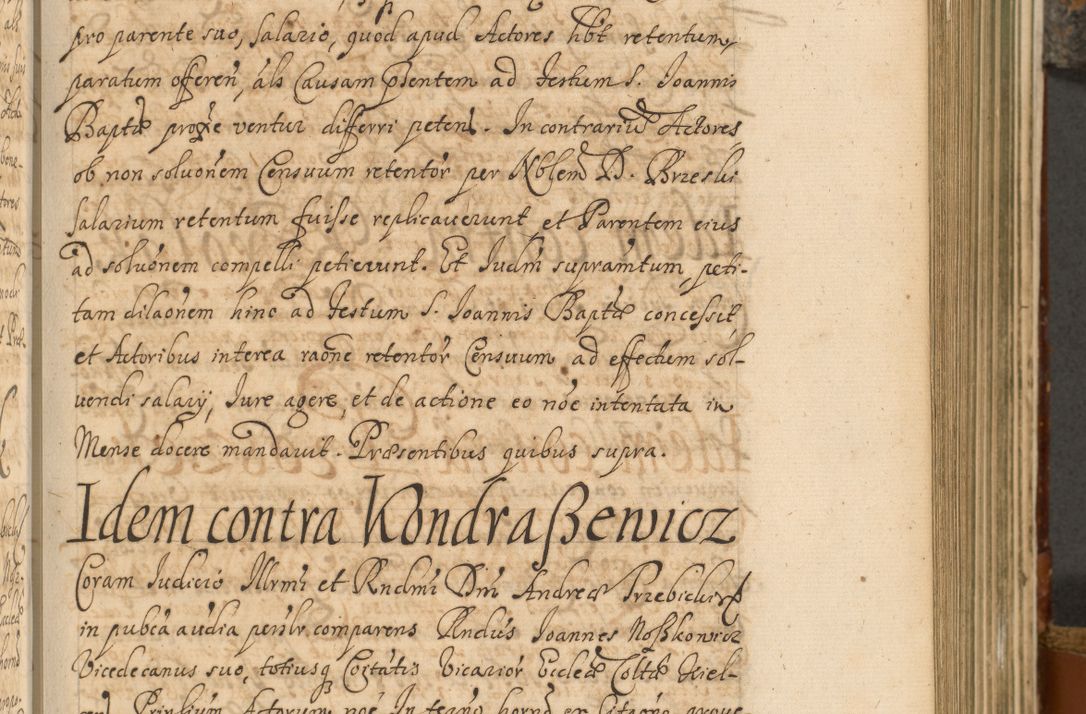 pro parente suo, salario, quod apud Actores hbt retentum,
paratum offeren, als Causam pñtem ad festum S. Joannis
Baptæ proxe ventur differri petens. In contrariũ Actores
ob non soluõnem Censuum retentor per Nblem D. Brzeski
salarium retentum fuisse replicaverunt, et Parentem eius
ad soluõnem compelli petierunt. Et Judm supramtum, peti-
tam dilaõnem hinc ad festum S. Joannis Baptæ concessit
et Actoribus interea raõne retentor Censuum ad effectum sol-
vendi salarij, Jure agere, et de actione eo nõe intentata in
Mense docere mandavit. Præsentibus quibus supra.
Idem contra Kondraßewicz
Coram Judicio Illrmi et Rndmi Dni Andreæ Trzebicki
in pubca audia perslr comparens Rndus Joannes Noßkowicz
Vicedecanus suo, totiusq Coitatis Vicarior Eccleæ Coltæ Kiel-
Prinlium Actorum nõe In termo